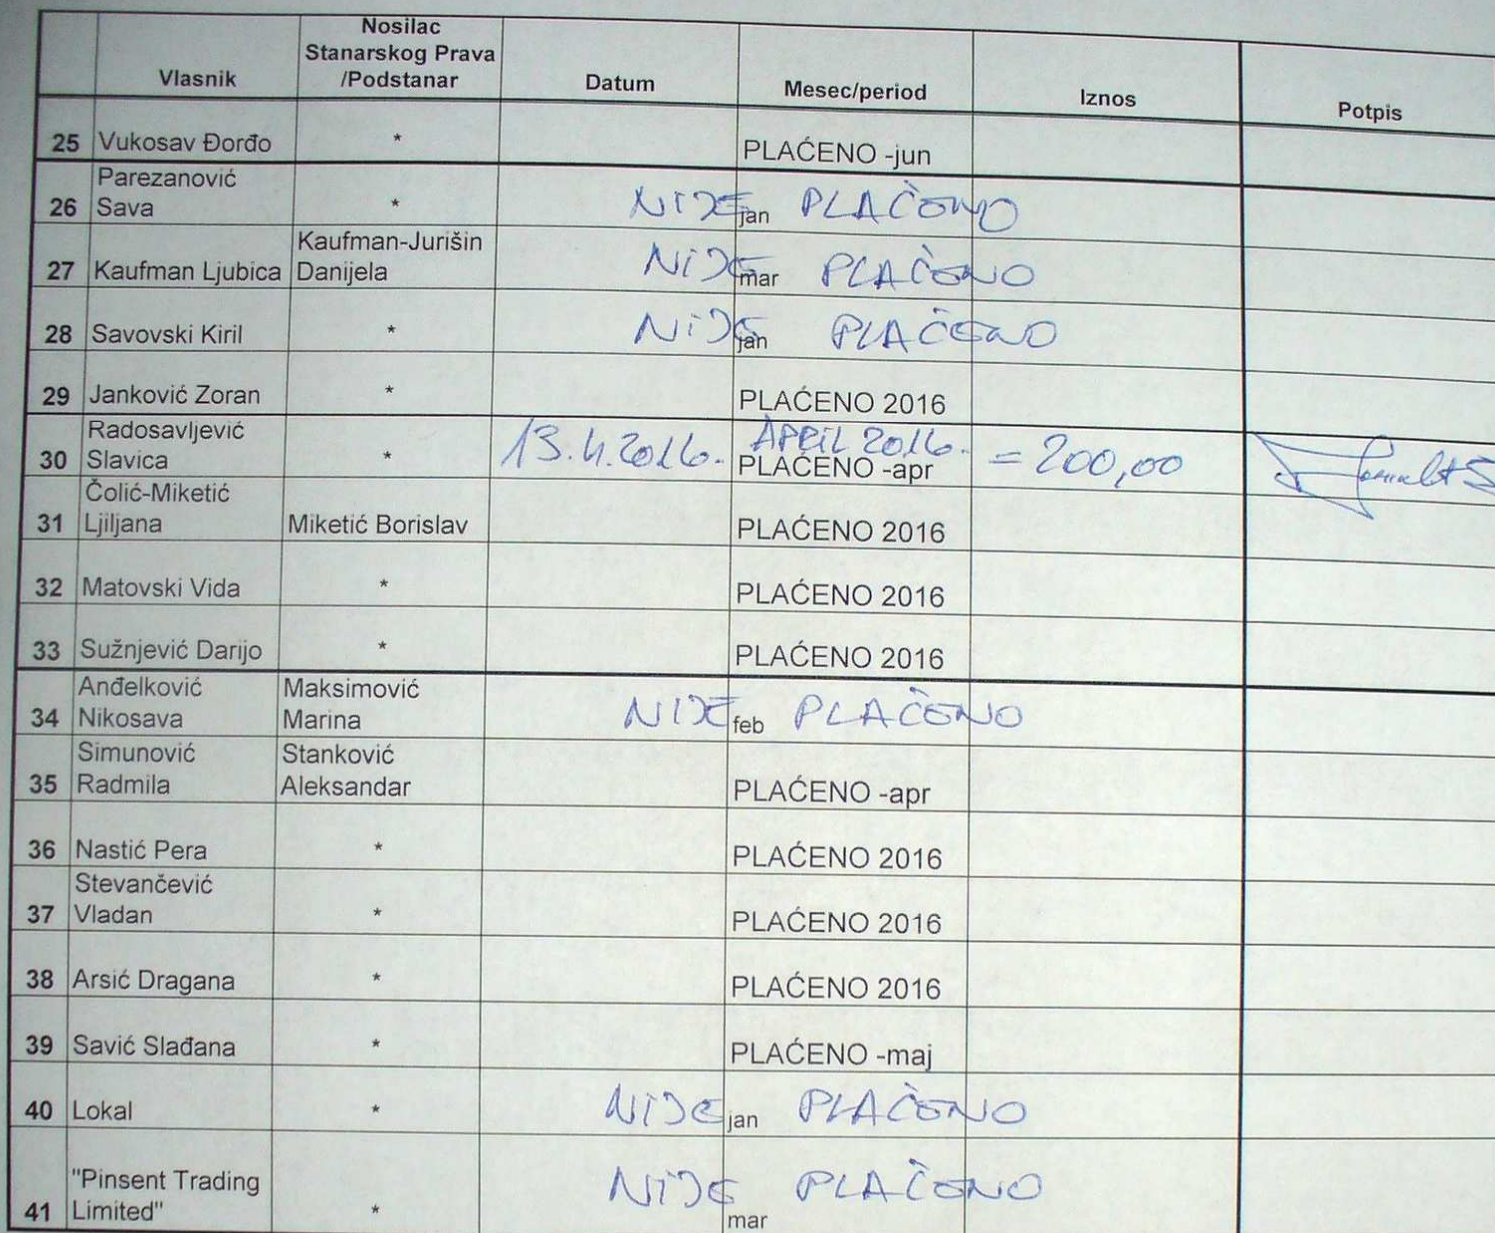 Vlasnik Nosilac Stanarskog Prava /Podstanar Datum Mesec/period Iznos Potpis
25 Vukosav Đorđo * PLAĆENO -jun
26 Parezanović Sava * NIJE jan PLAČENO
27 Kaufman Ljubica Kaufman-Jurišin Danijela NiJE mar PLAČENO
28 Savovski Kiril * NiJE jan PLAČENO
29 Janković Zoran * PLAĆENO 2016
30 Radosavljević Slavica * 13.4.2016. APRiL 2016. PLAĆENO -apr = 200,00
31 Čolić-Miketić Ljiljana Miketić Borislav PLAĆENO 2016
32 Matovski Vida * PLAĆENO 2016
33 Sužnjević Darijo * PLAĆENO 2016
34 Anđelković Nikosava Maksimović Marina NIJE feb PLAČENO
35 Simunović Radmila Stanković Aleksandar PLAĆENO -apr
36 Nastić Pera * PLAĆENO 2016
37 Stevančević Vladan * PLAĆENO 2016
38 Arsić Dragana * PLAĆENO 2016
39 Savić Slađana * PLAĆENO -maj
40 Lokal * NIJE jan PLAČENO
41 "Pinsent Trading Limited" * NIJE mar PLAČENO